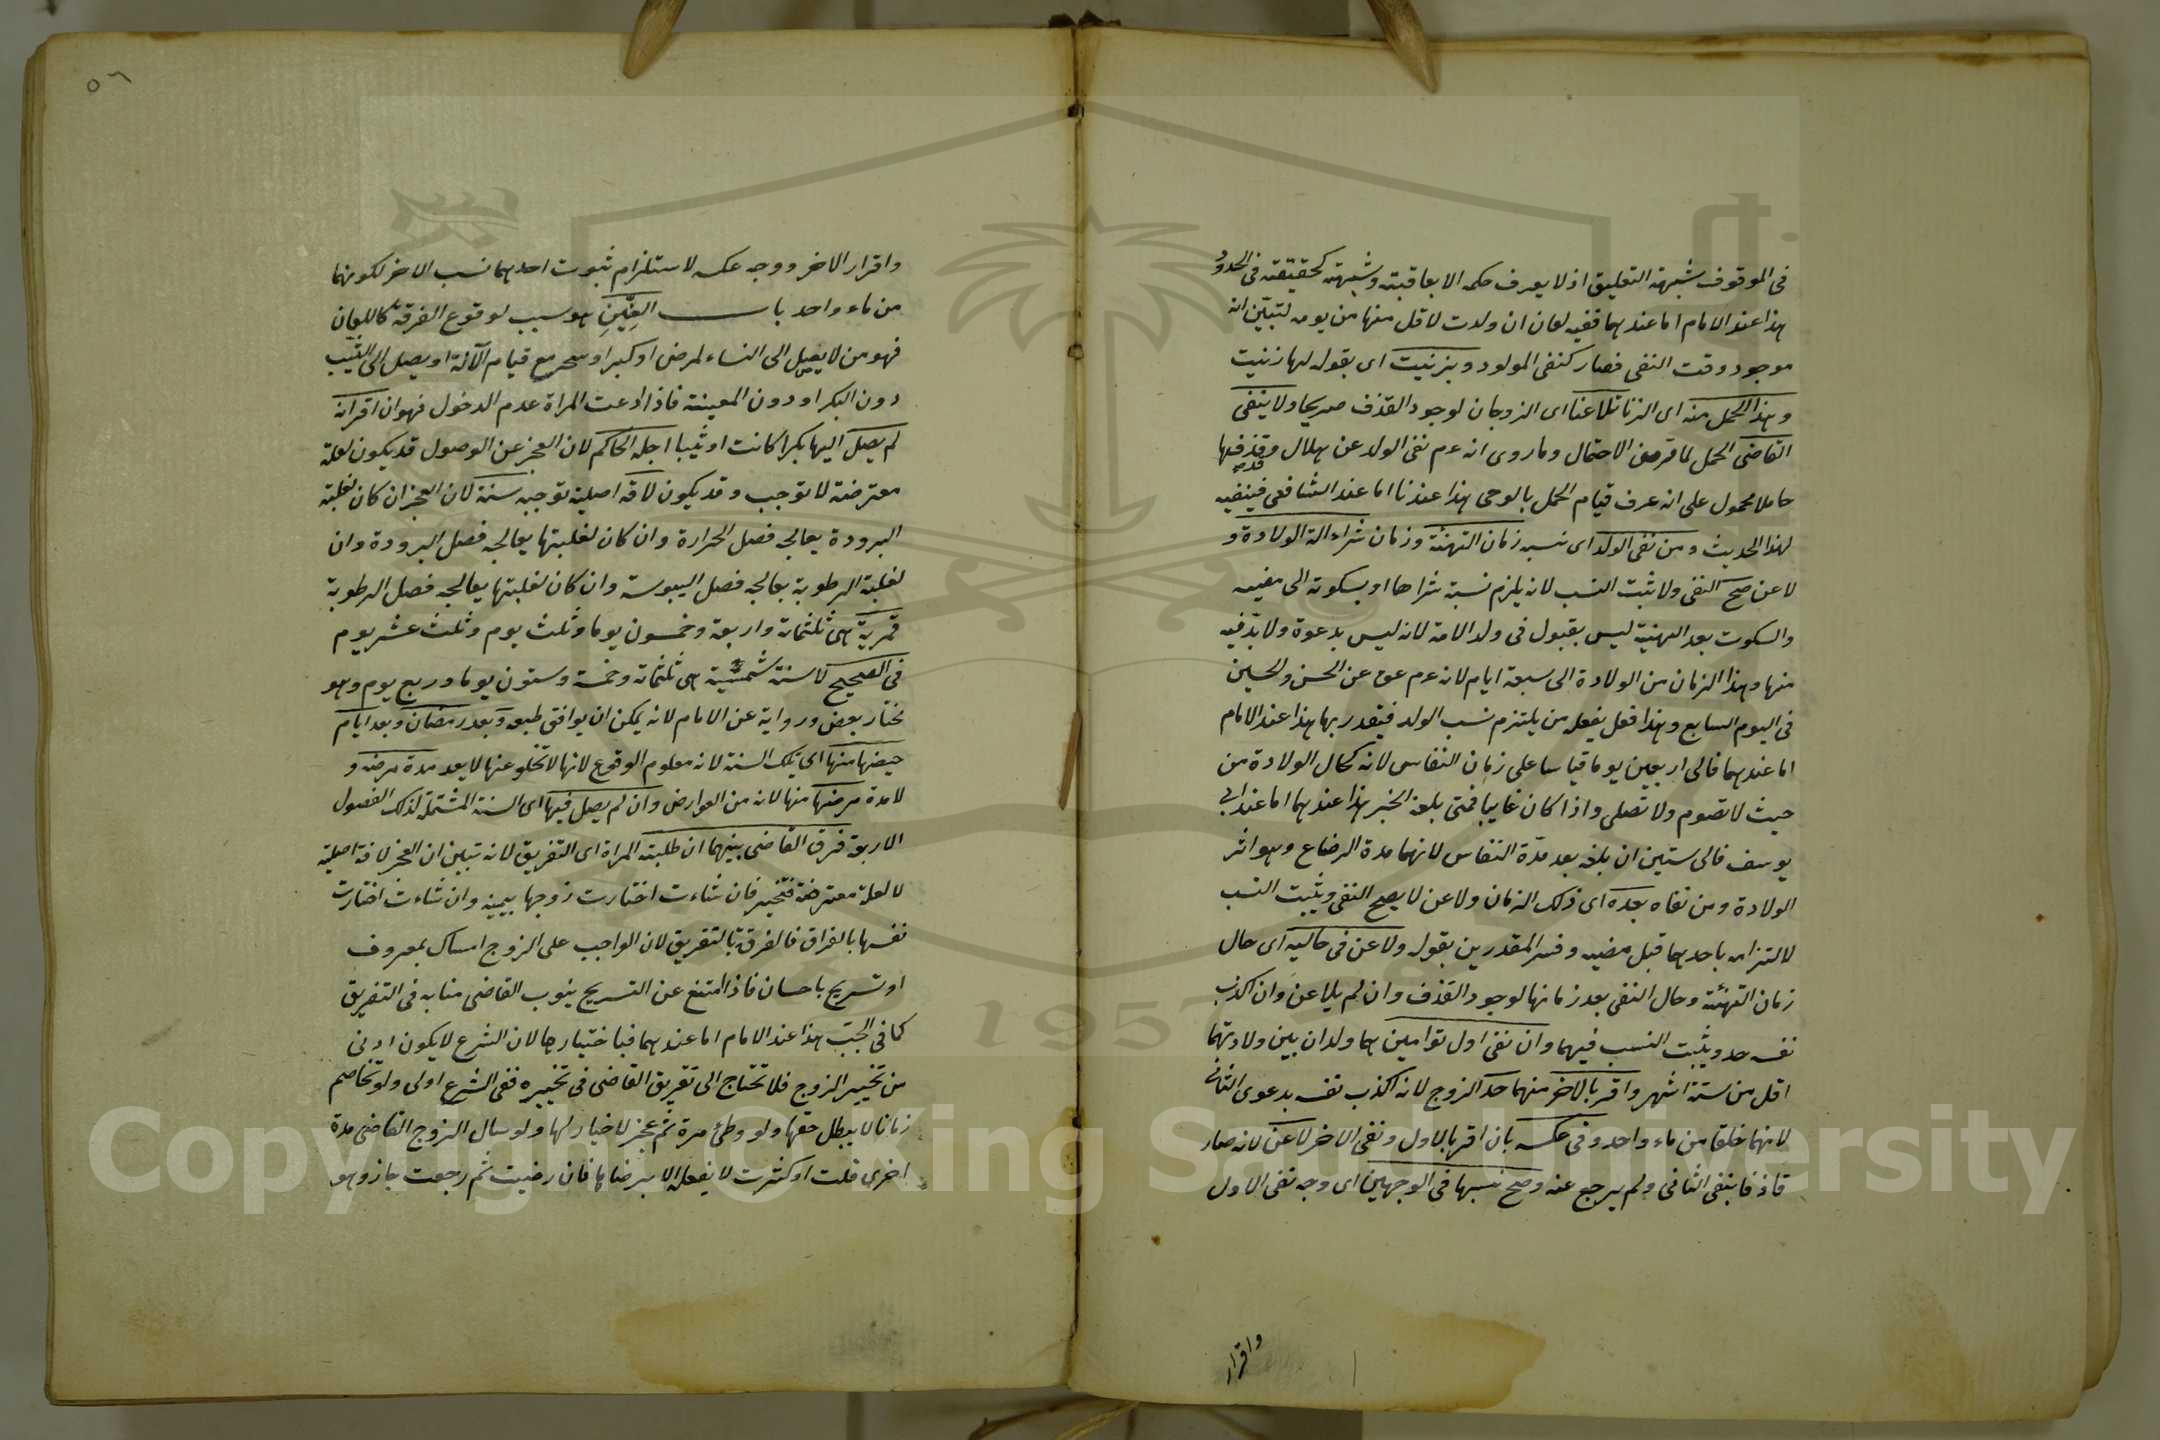 فى الموقوف شبهة التعليق اذ لا يعرف حكمه الا بعاقبته وشبهته كحقيقته فى الحدود
هذا عند الامام اما عندهما ففيه لعان ان ولدت لاقل منها من يومه لتبيّن انه
موجود وقت النفى فصار كنفى المولود وبزنيت اى بقوله لها زنيت
وهذا الحمل منه اى الزنا تلاعنا اى الزوجان لوجود القذف صريحا ولا ينفى
القاضى الحمل لما مر من الاحتمال وما روى انه عم نفى الولد عن هلال وقذفها
حاملا محمول على انه عرف قيام الحمل بالوحى هذا عندنا اما عند الشافعى فينفيه
لهذا الحديث ومن نفى الولد اى نسبه زمان التهنئة وزمان شراء الة الولادة و
لاعن صح النفى ولا ثبت النسب لانه يلزم نسبة شراها او بسكوته الى مضيه
والسكوت بعد التهنية ليس بقبول فى ولد الامة لانه ليس بدعوة ولا بد فيه
منها وهذا الزمان من الولادة الى سبعة ايام لانه عم عق عن الحسن والحسين
فى اليوم السابع وهذا فعل يفعله من يلتزم نسب الولد فيقدر بها هذا عند الامام
اما عندهما فالى اربعين يوما قياسا على زمان النفاس لانه كحال الولادة من
حيث لا تصوم ولا تصلى واذا كان غايبا فمتى بلغه الخبر هذا عندهما اما عند ابى
يوسف فالى ستين ان بلغه بعد مدة النفاس لانهما مدة الرضاع وهو اثر
الولادة ومن نفاه بعده اى ذلك الزمان ولاعن لا يصح النفى ويثبت النسب
لالتزامه باحدهما قبل مضيه وفسر المقدرين بقوله ولاعن فى حاليه اى حال
زمان التهنئة وحال النفى بعد زمانها لوجود القذف وان لم يلاعن وان اكذب
نفسه حد ويثبت النسب فيهما وان نفى اول توامين هما ولدان بين ولادتهما
اقل من ستة اشهر واقر بالاخر منهما حد الزوج لانه اكذب نفسه بدعوى الثانى
لانهما خلقا من ماء واحد وفى عكسه بان اقر بالاول ونفى الاخر لاعن لانه صار
قاذفا بنفى الثانى ولم يرجع عنه وصح نسبهما فى الوجهين اى وجه نفى الاول
واقرار
٥٦
واقرار الاخر ووجه عكسه لاستلزام ثبوت احدهما نسب الاخر لكونهما
من ماء واحد باب العِنّين هو سبب لوقوع الفرقة كاللعان
فهو من لا يصل الى النساء لمرض او كبر او سحر مع قيام الآلة او يصل الى الثيّب
دون البكر او دون المعينة فاذا ادعت المراة عدم الدخول فهو ان اقر انه
لم يصل اليها بكرا كانت او ثيبا اجله الحاكم لان العجز عن الوصول قد يكون لعلة
معترضة لا توجب وقد يكون لافة اصلية توجبه سنة لان العجز ان كان لغلبة
البرودة يعالجه فصل الحرارة وان كان لغلبتها يعالجه فصل البرودة وان
لغلبة الرطوبة يعالجه فصل اليبوسة وان كان لغلبتها يعالجه فصل الرطوبة
قمريّة هى ثلثمائة واربعة وخمسون يوما وثلث يوم وثلث عشر يوم
فى الصحيح لا سنة شمسية هى ثلثمائة وخمسة وستون يوما وربع يوم وهو
مختار بعض ورواية عن الامام لانه يمكن ان يوافق طبعه وبعد رمضان وبعد ايام
حيضها منها اى تلك السنة لانه معلوم الوقوع لانها لا تخلو عنها لا بعد مدة مرضه و
لا مدة مرضها منها لانه من العوارض وان لم يصل فيها اى السنة المشتملة لذلك الفصول
الاربعة فرق القاضى بينهما ان طلبته المراة اى التفريق لانه تبين ان العجز لافة اصلية
لا لعلة معترضة فتخير فان شاءت اختارت زوجها بيمينه وان شاءت اختارت
نفسها بالفراق فالفرقة بالتفريق لان الواجب على الزوج امساك بمعروف
او تسريح باحسان فاذا امتنع عن التسريح ينوب القاضى منابه فى التفريق
كما فى الجبّ هذا عند الامام اما عندهما فباختيارها لان الشرع لا يكون ادنى
من تخيير الزوج فلا تحتاج الى تفريق القاضى فى تخييره ففى الشرع اولى ولو تخاصم
زمانا لا يبطل حقها ولو وطئ مرة ثم عجز لا خيار لها ولو سال الزوج القاضى مدة
اخرى قلت او كثرت لا يفعله الا برضاها فان رضيت ثم رجعت جاز وهو
Copyright © King Saud University
1957